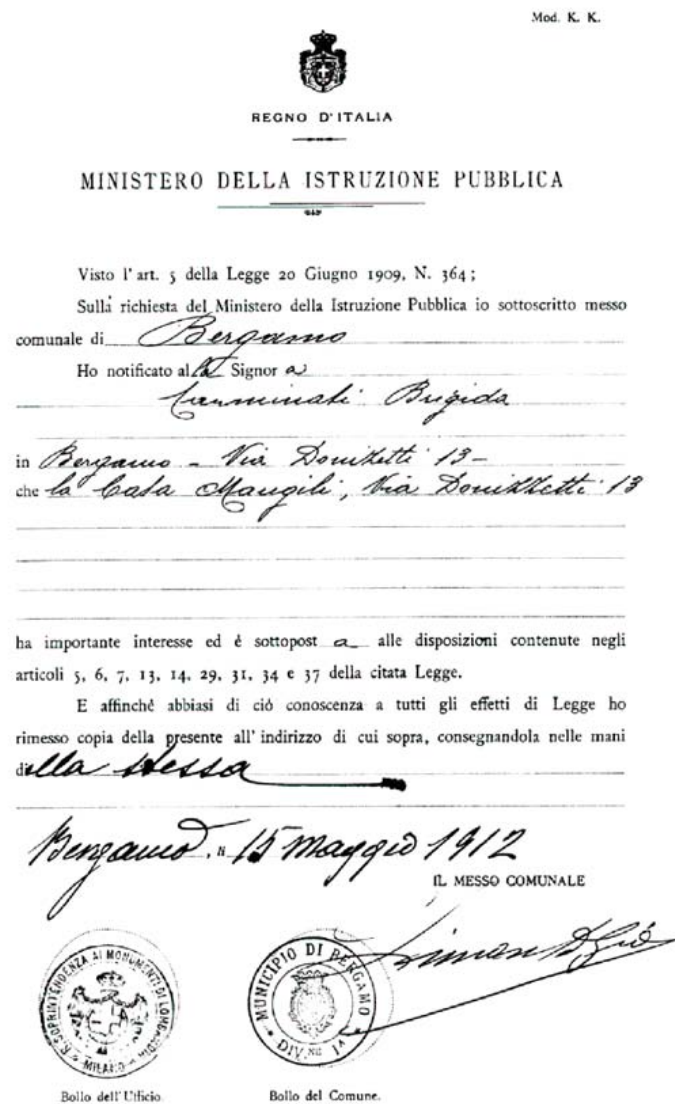 Mod. K. K.
REGNO D'ITALIA
MINISTERO DELLA ISTRUZIONE PUBBLICA
Visto l'art. 5 della Legge 20 Giugno 1909, N. 364;
Sulla richiesta del Ministero della Istruzione Pubblica io sottoscritto messo
comunale di Bergamo
Ho notificato alla Signora
Carminati Brigida
in Bergamo - Via Donizetti 13 -
che la Casa Mangili, Via Donizzetti 13
ha importante interesse ed è sottoposta alle disposizioni contenute negli
articoli 5, 6, 7, 13, 14, 29, 31, 34 e 37 della citata Legge.
E affinché abbiasi di ció conoscenza a tutti gli effetti di Legge ho
rimesso copia della presente all'indirizzo di cui sopra, consegnandola nelle mani
della stessa
Bergamo, li 15 Maggio 1912
IL MESSO COMUNALE
R. SOPRINTENDENZA AI MONUMENTI DI LOMBARDIA
MILANO
MUNICIPIO DI BERGAMO
DIV.NE 1ª
Bollo dell'Ufficio.
Bollo del Comune.